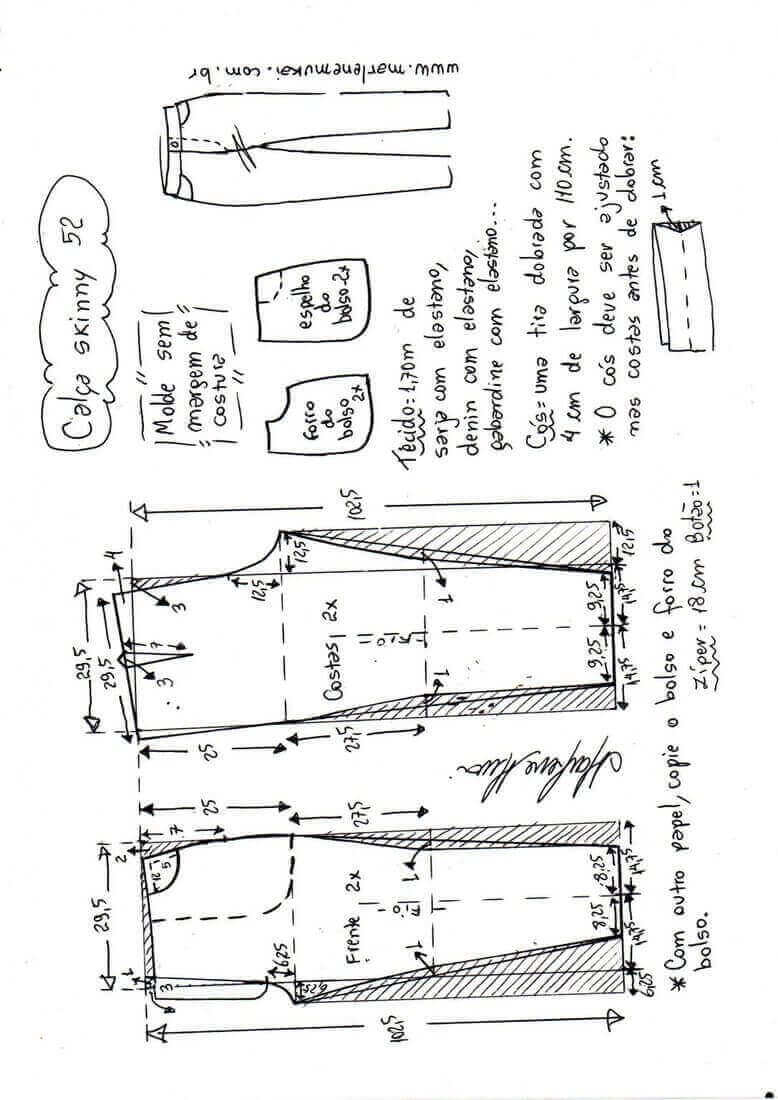 Calça skinny 52
www.marlenemukai.com.br
Molde sem
margem de
costura
forro
do
bolso
2x
espelho
do
bolso-2x
Tecido=1,70m de
sarja com elastano,
denin com elastano,
gabardine com elastano...
Cós=uma tira dobrada com
4 cm de largura por 110 cm.
* O cós deve ser ajustado
nas costas antes de dobrar:
1 cm
102,5
29,5
1
3
2
7
12
5
25
27,5
6,25
6,25
Frente 2x
1
1
8,25
8,25
14,75
14,75
6,25
29,5
29,5
4
3
7
3
25
27,5
12,5
12,5
Costas 2x
1
1
9,25
9,25
14,75
14,75
12,5
102,5
* Com outro papel, copie o bolso e forro do
bolso.
Zíper = 18 cm Botão=1